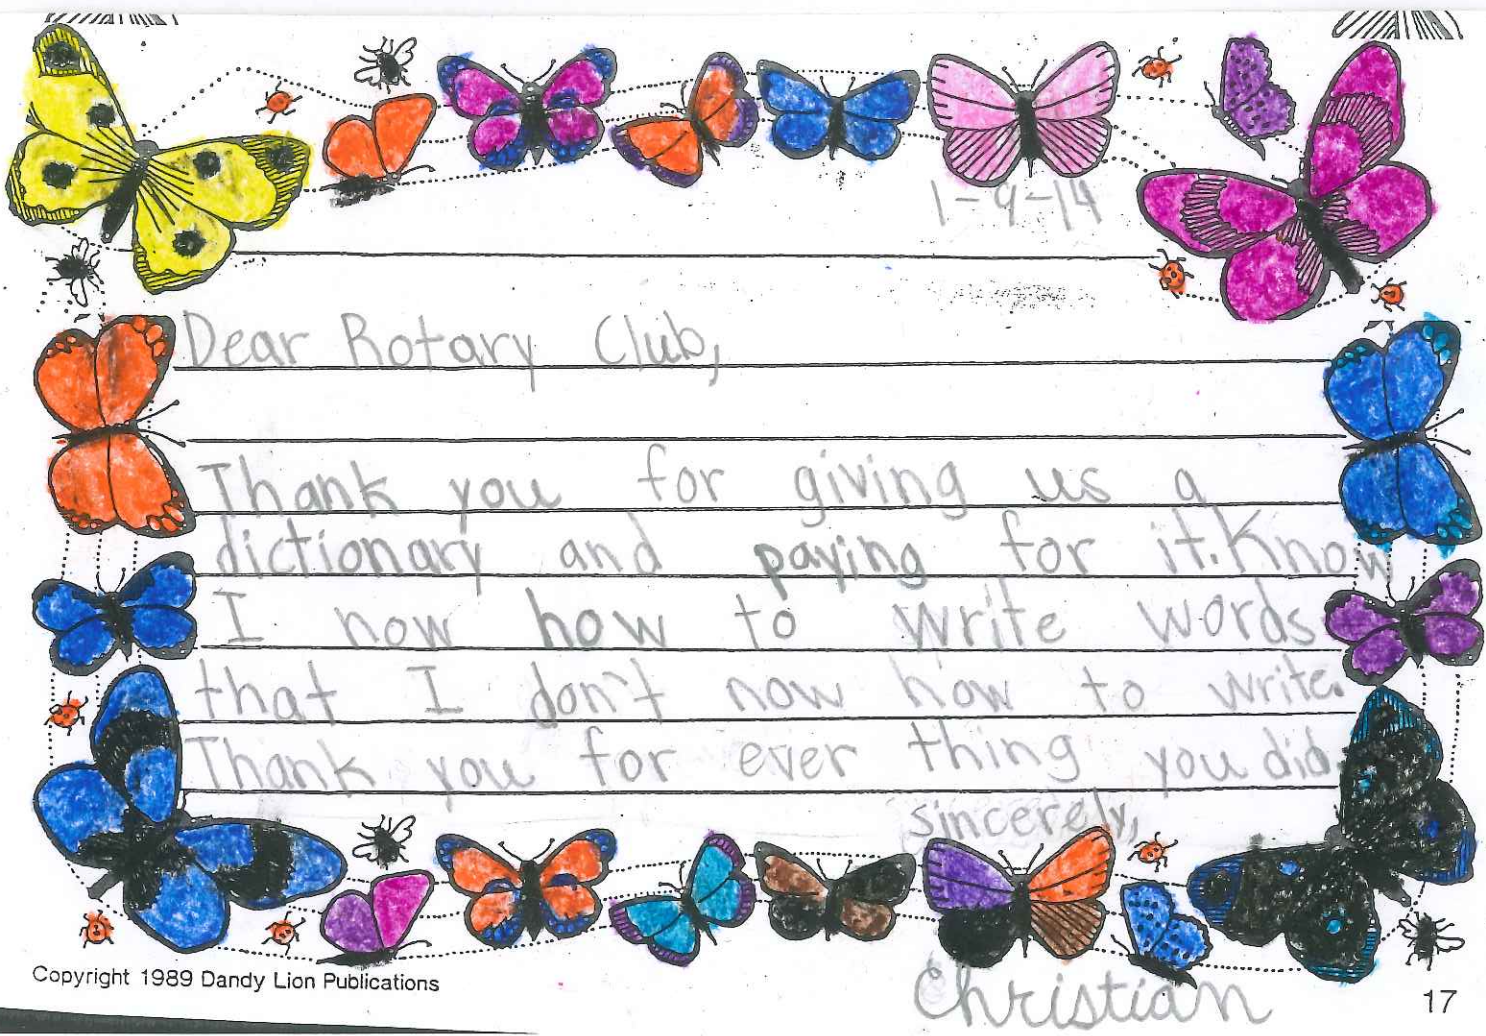 1-9-14
Dear Rotary Club,
Thank you for giving us a
dictionary and paying for it. Know
I now how to write words
that I don't now how to write.
Thank you for ever thing you did
sincerely,
Christian
Copyright 1989 Dandy Lion Publications
17